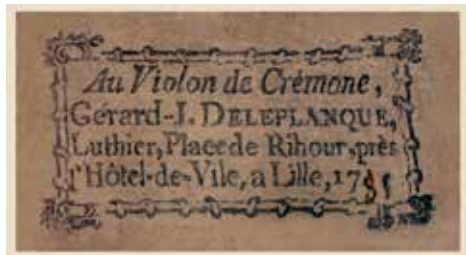 Au Violon de Crémone,
Gérard-J. DELEPLANQUE,
Luthier, Place de Rihour, près
l'Hôtel-de-Vile, a Lille, 17